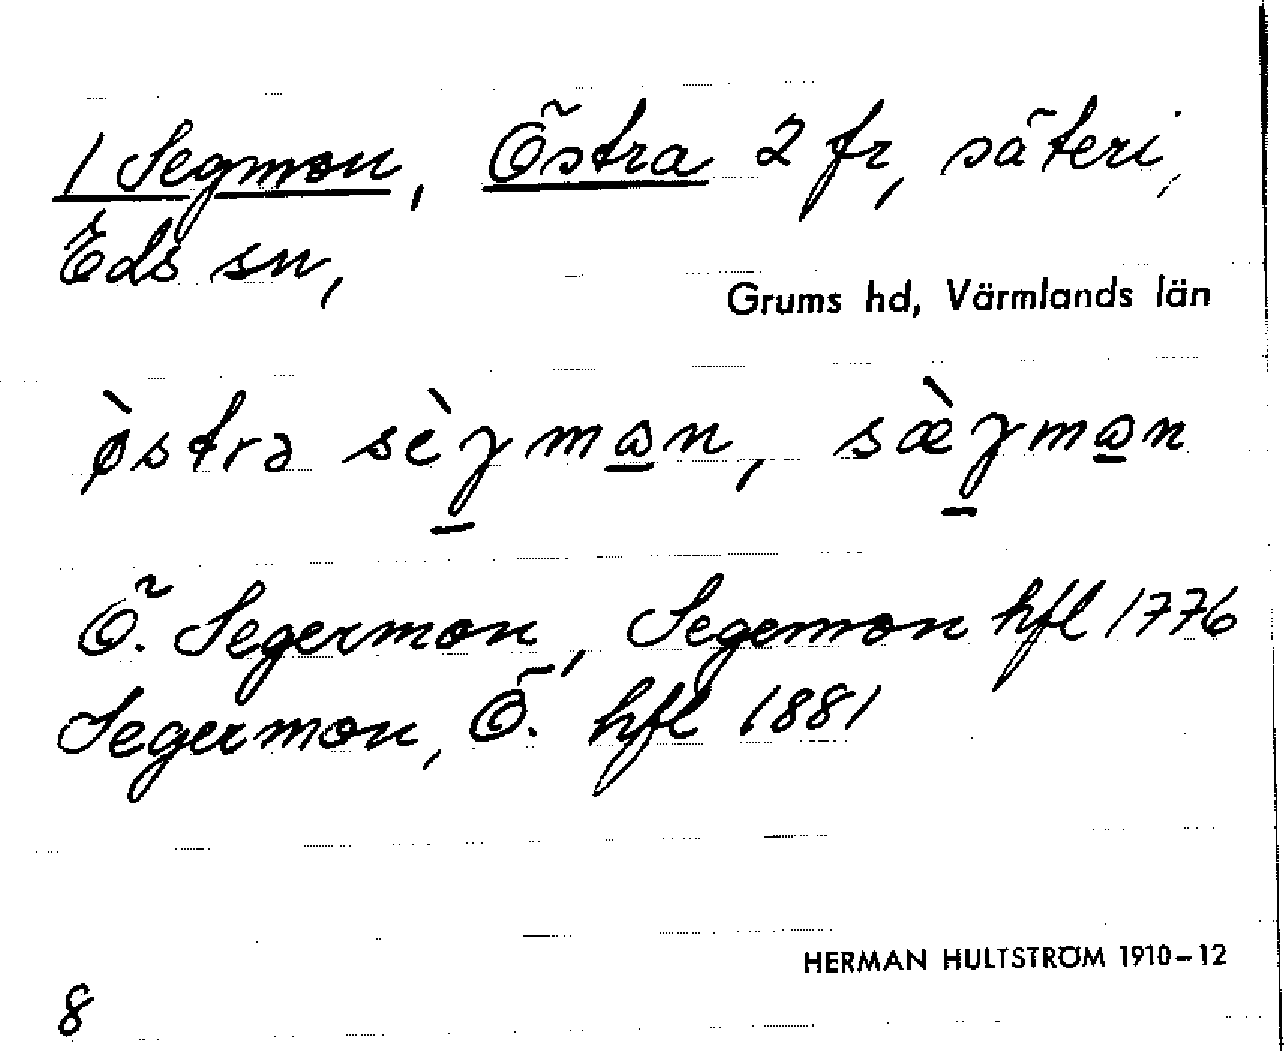 1 Segmon, Östra 2 fr, säteri,
Eds sn,
Grums hd, Värmlands län
ø̀strə sèɣmωn, sæ̀ɣmωn
Ö. Segermon, Segemon hfl 1776
Segermon, Ö. hfl 1881
HERMAN HULTSTRÖM 1910–12
8